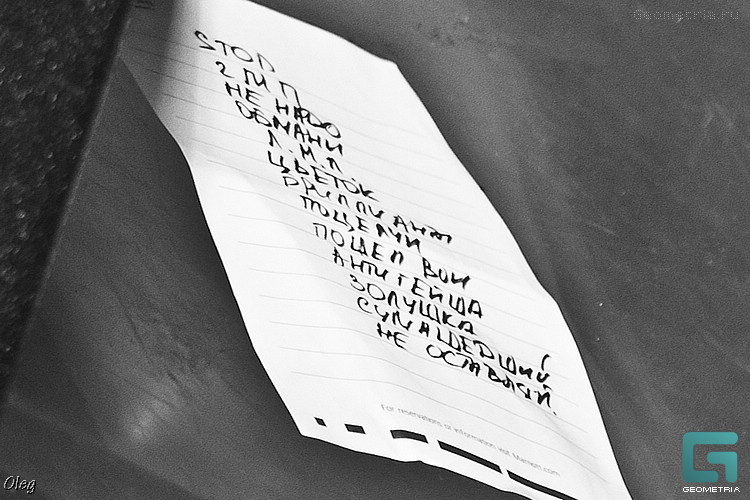 Geometria.ru
STOP
2 М П
НЕ НАДО
ОБМАНИ
Л.М.Л.
ЦВЕТОК
БРИЛЛИАНТ
ПОЦЕЛУИ
ПОЦЕЛ ВОИ
АНТИГЕЙША
ЗОЛУШКА
СУМАШЕДШИЙ
НЕ ОСТАВЛЯЙ.
For reservations or information visit Marriott.com
Oleg
G
GEOMETRIA